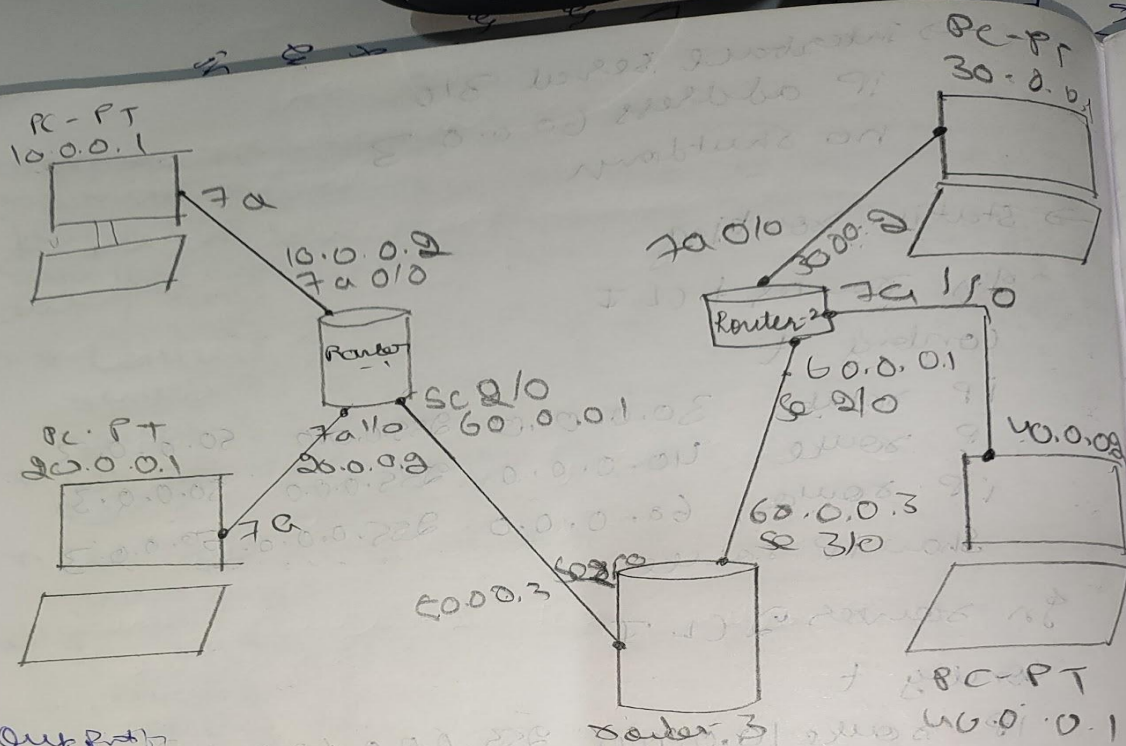 PC-PT
10.0.0.1
7a
10.0.0.2
7a 0/0
Router
-1
Sc 2/0
60.0.0.1
7a 1/0
20.0.0.2
PC-PT
20.0.0.1
7a
PC-PT
30.0.0.1
7a 0/0
30.0.0.2
Router-2
7a 1/0
60.0.0.1
Se 2/0
40.0.0.2
60.0.0.3
Se 3/0
router-3
PC-PT
40.0.0.1